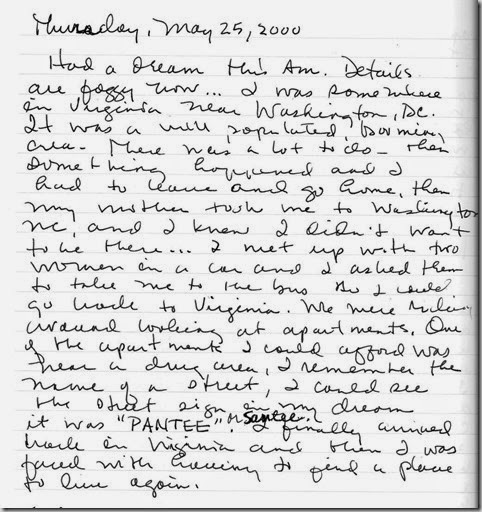 Thursday, May 25, 2000
Had a dream this Am. Details
are foggy now... I was somewhere
in Virginia near Washington, DC.
It was a well populated, booming
area. There was a lot to do - then
something happened and I
had to leave and go home, then
my mother took me to Washington
NC, and I knew I didn't want
to be there... I met up with two
women in a car and I asked them
to take me to the bus so I could
go back to Virginia. We were riding
around looking at apartments. One
of the apartments I could afford was
near a drug area, I remember the
name of a street, I could see
the street sign in my dream
it was "PANTEE" or Santee. I finally arrived
back in Virginia and then I was
faced with having to find a place
to live again.